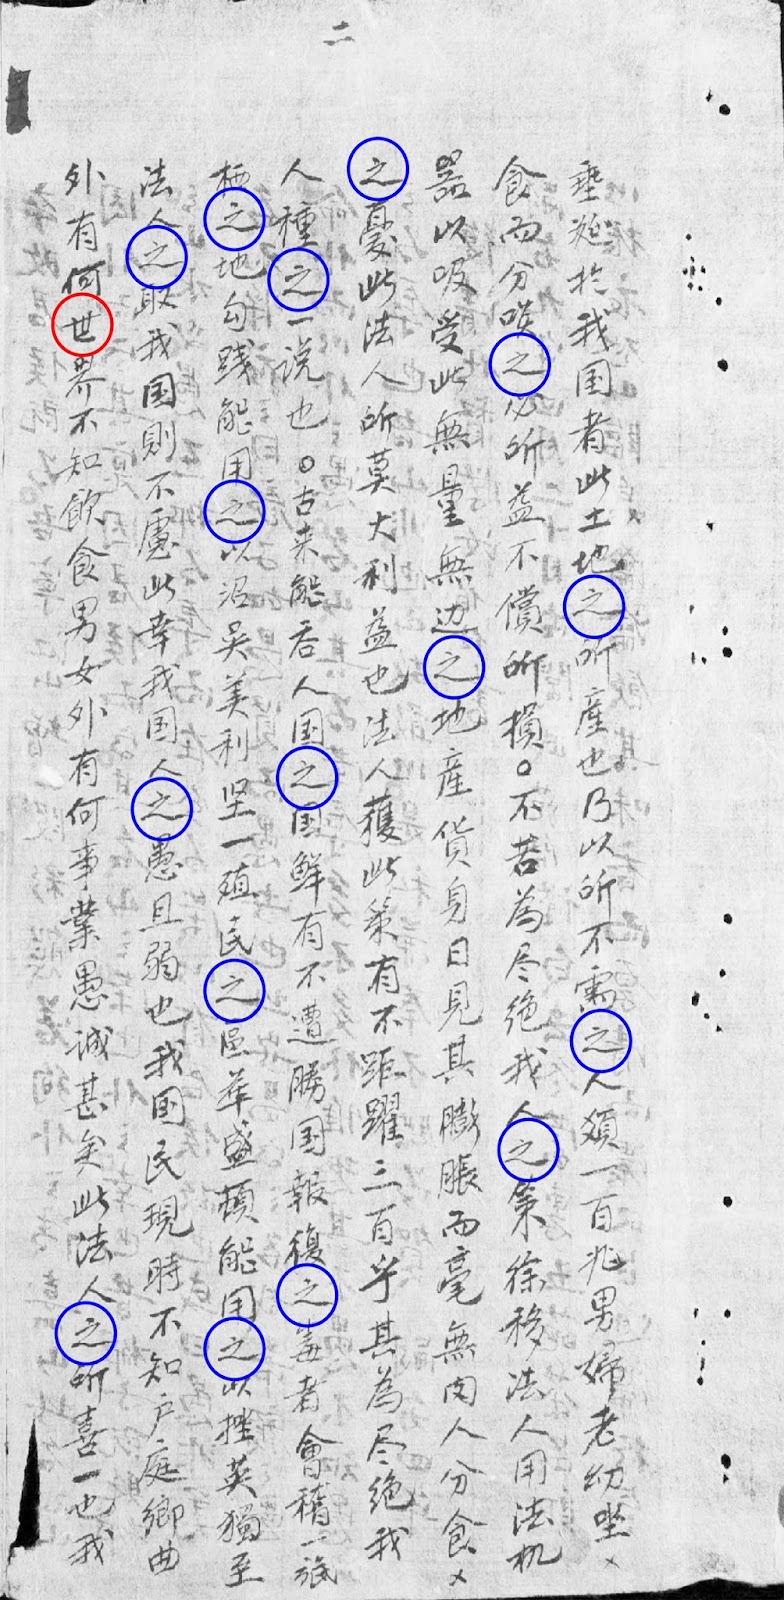 二
垂涎於我国者此土地之所産也乃以所不需之人頞一百兆男婦老幼坐〻
食而分啖之必所益不償所損。不若為尽绝我人之策徐移法人用法机
器以吸受此無量無边之地産貨身日見其膨脹而毫無肉人分食〻
之憂此法人所莫大利益也法人獲此策有不距躍三百乎其為尽绝我
人種之一说也。古来能吞人国之国鲜有不遭勝国報復之毒者會稽一派
栖之地勾践能用之以沼吴美利坚一殖民之區華盛頓能用之以挫英獨至
法人之取我国則不慮此幸我国人之愚且弱也我国民現時不知户庭鄉曲
外有何世界不知飲食男女外有何事業愚诚甚矣此法人之所喜一也我